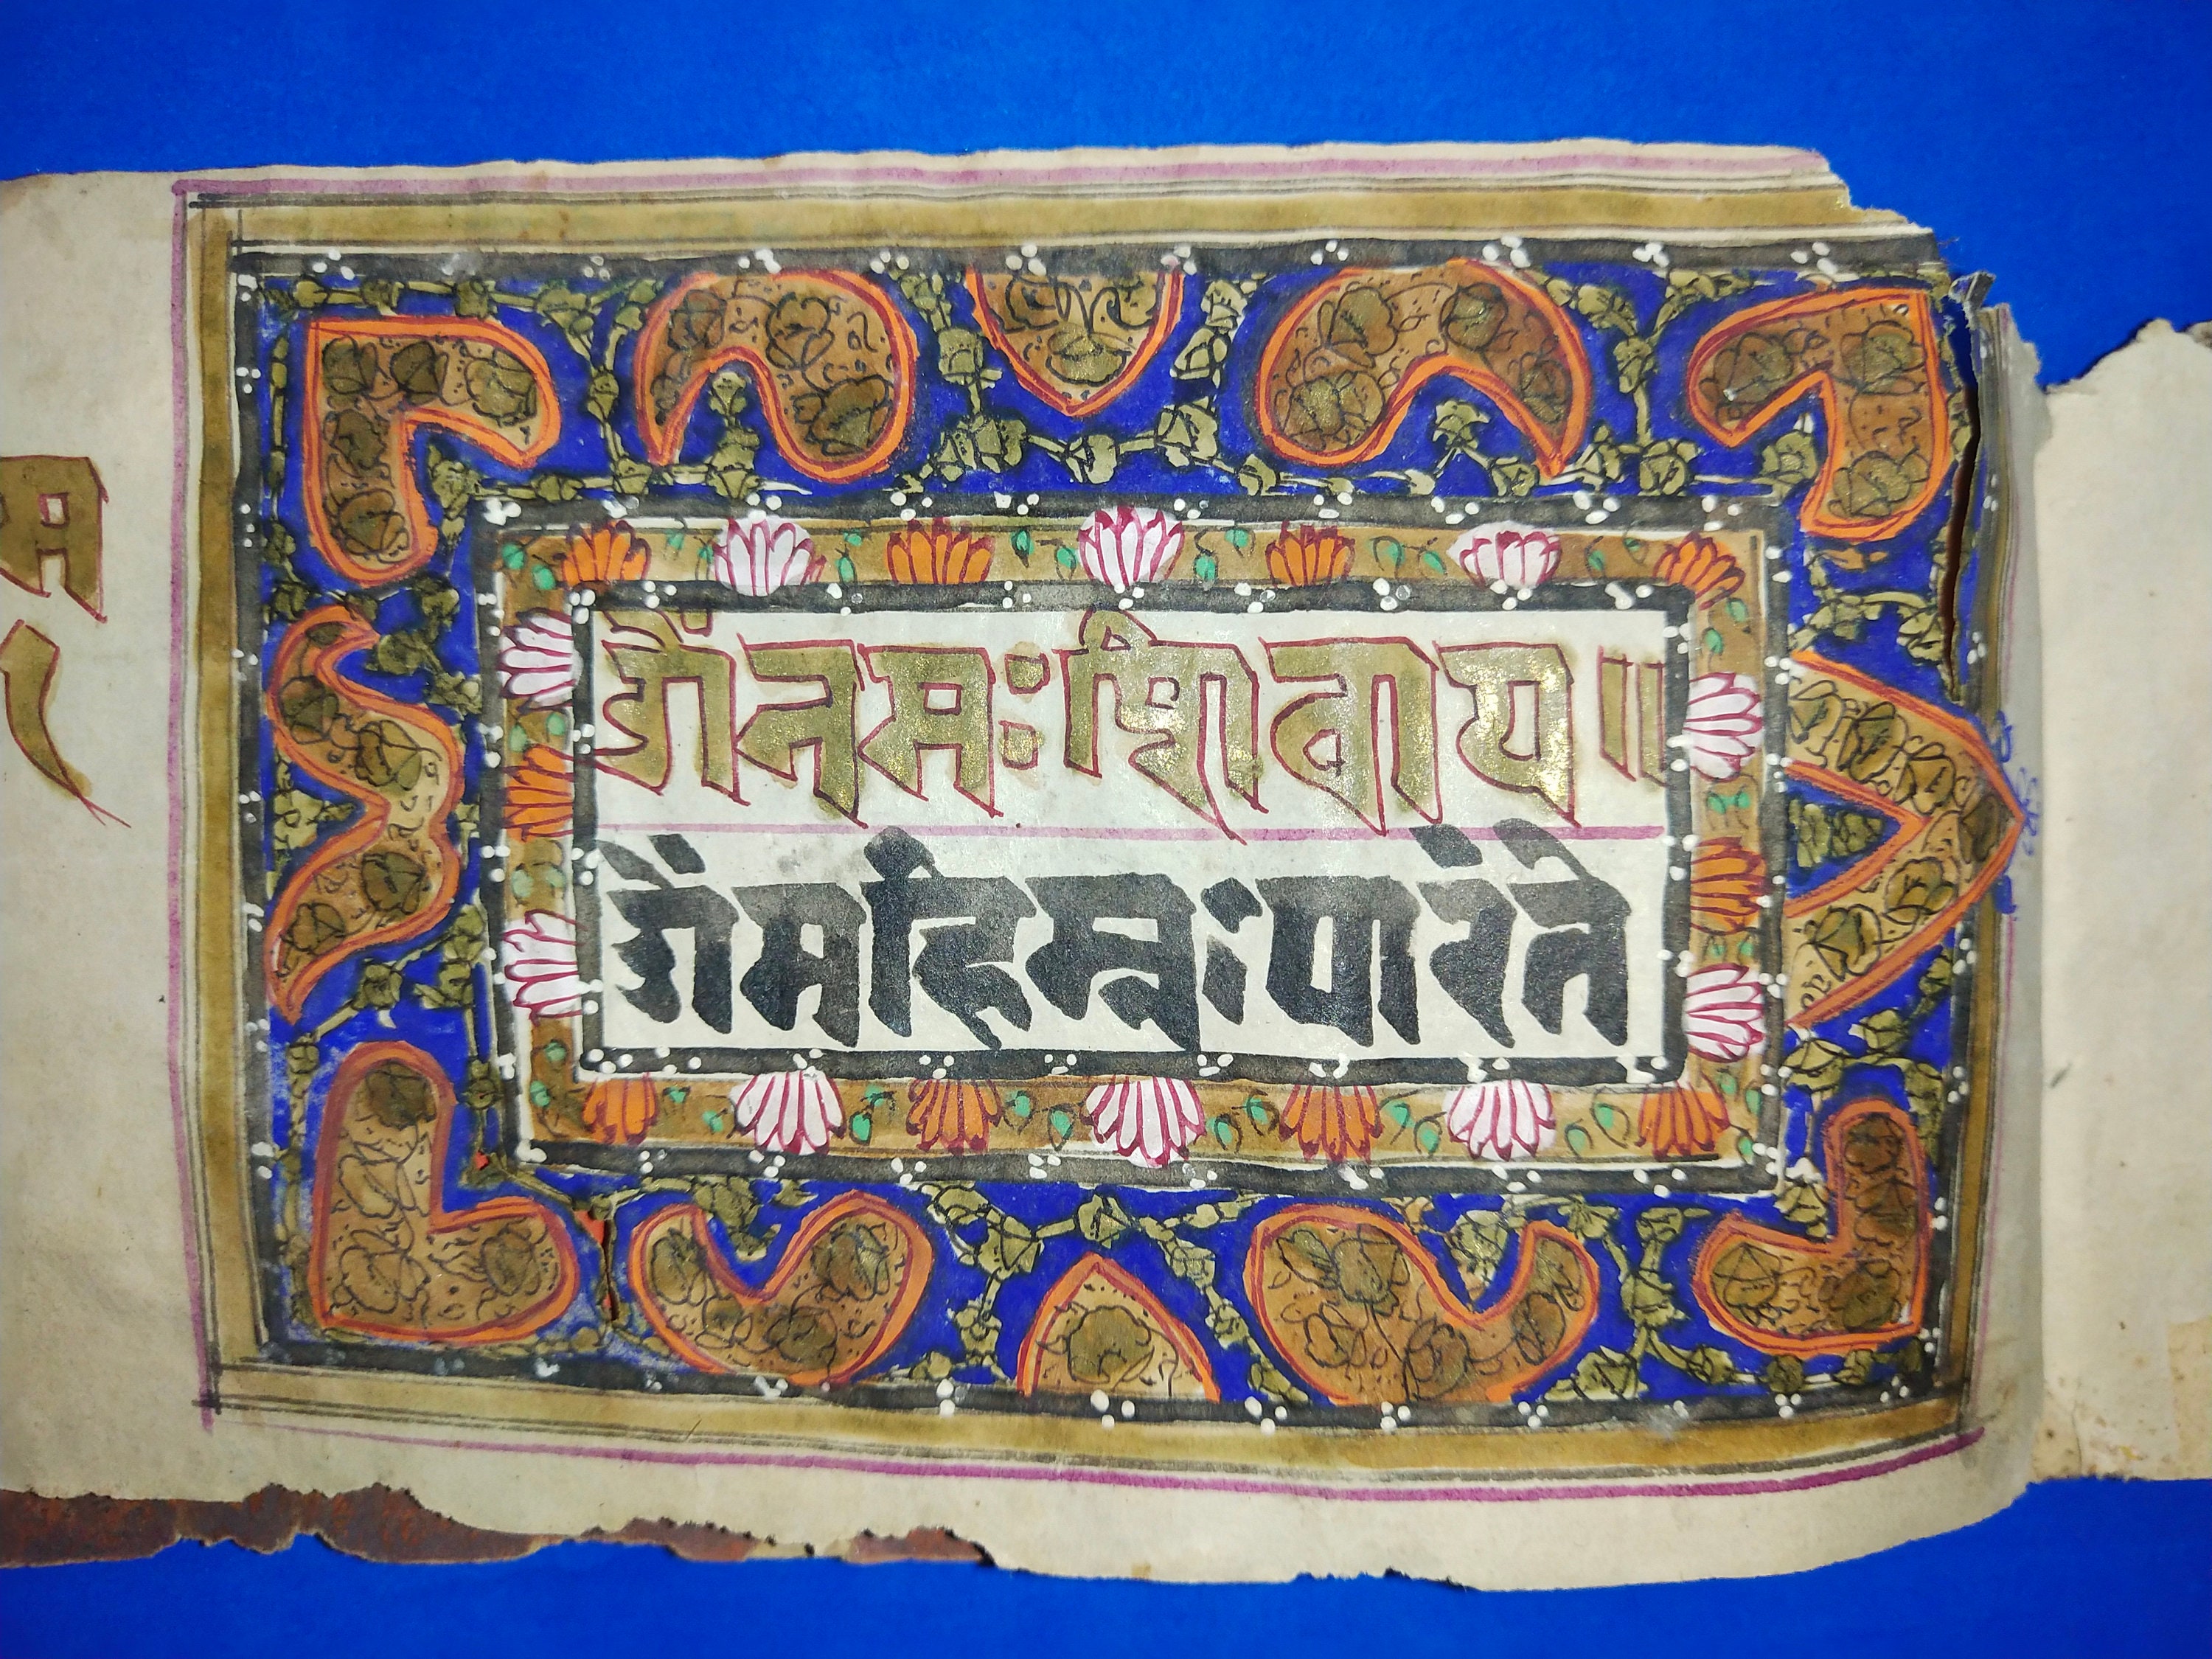 ओंनमःशिवाय॥
ओंमहिम्नःपारंते